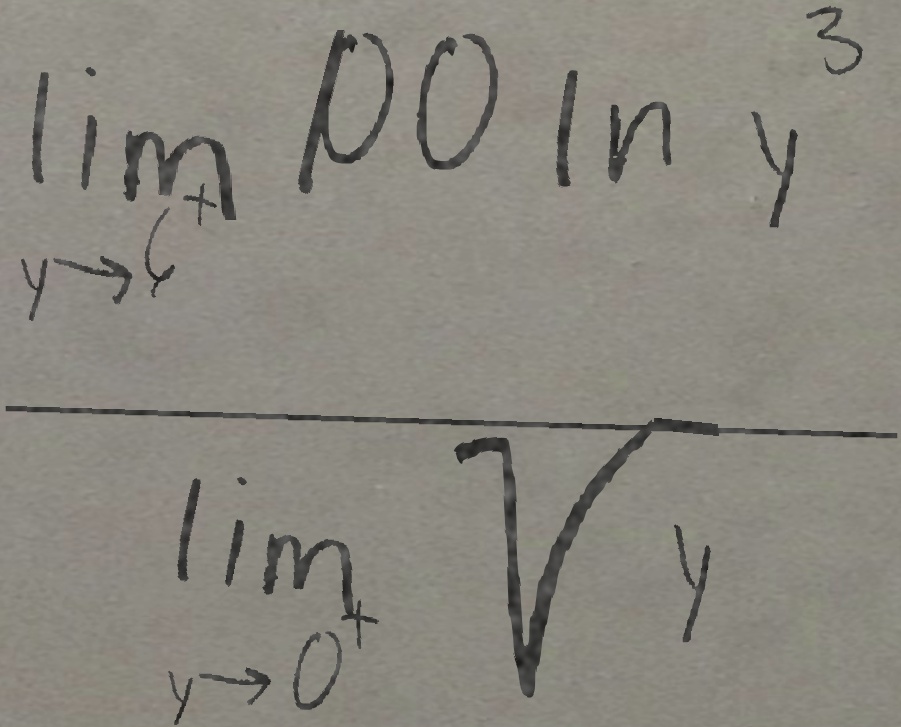 lim y→6⁺ 00 ln y³
lim y→0⁺ √y